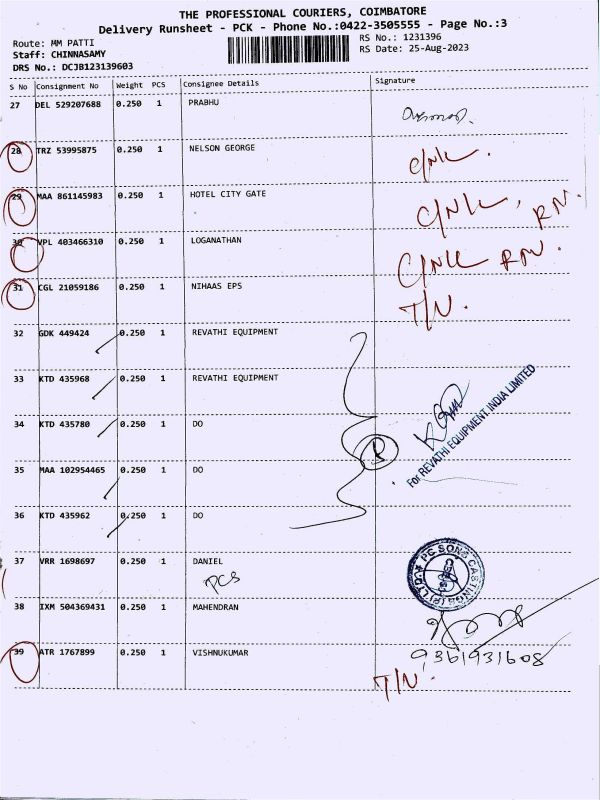 THE PROFESSIONAL COURIERS, COIMBATORE
Delivery Runsheet - PCK - Phone No.:0422-3505555 - Page No.:3
Route: MM PATTI
RS No.: 1231396
Staff: CHINNASAMY
RS Date: 25-Aug-2023
DRS No.: DCJB123139603
S No Consignment No Weight PCS Consignee Details Signature
27 DEL 529207688 0.250 1 PRABHU
28 TRZ 53995875 0.250 1 NELSON GEORGE
C/NK.
29 MAA 861145983 0.250 1 HOTEL CITY GATE
C/NK, RN.
30 VPL 403466310 0.250 1 LOGANATHAN
C/NK RN.
31 CGL 21059186 0.250 1 NIHAAS EPS
T/N.
32 GDK 449424 0.250 1 REVATHI EQUIPMENT
33 KTD 435968 0.250 1 REVATHI EQUIPMENT
34 KTD 435780 0.250 1 DO
For REVATHI EQUIPMENT INDIA LIMITED
35 MAA 102954465 0.250 1 DO
36 KTD 435962 0.250 1 DO
37 VRR 1698697 0.250 1 DANIEL
PCS
PC SONS CASTINGS (P) LTD.
38 IXM 504369431 0.250 1 MAHENDRAN
39 ATR 1767899 0.250 1 VISHNUKUMAR
9361931608
T/N.